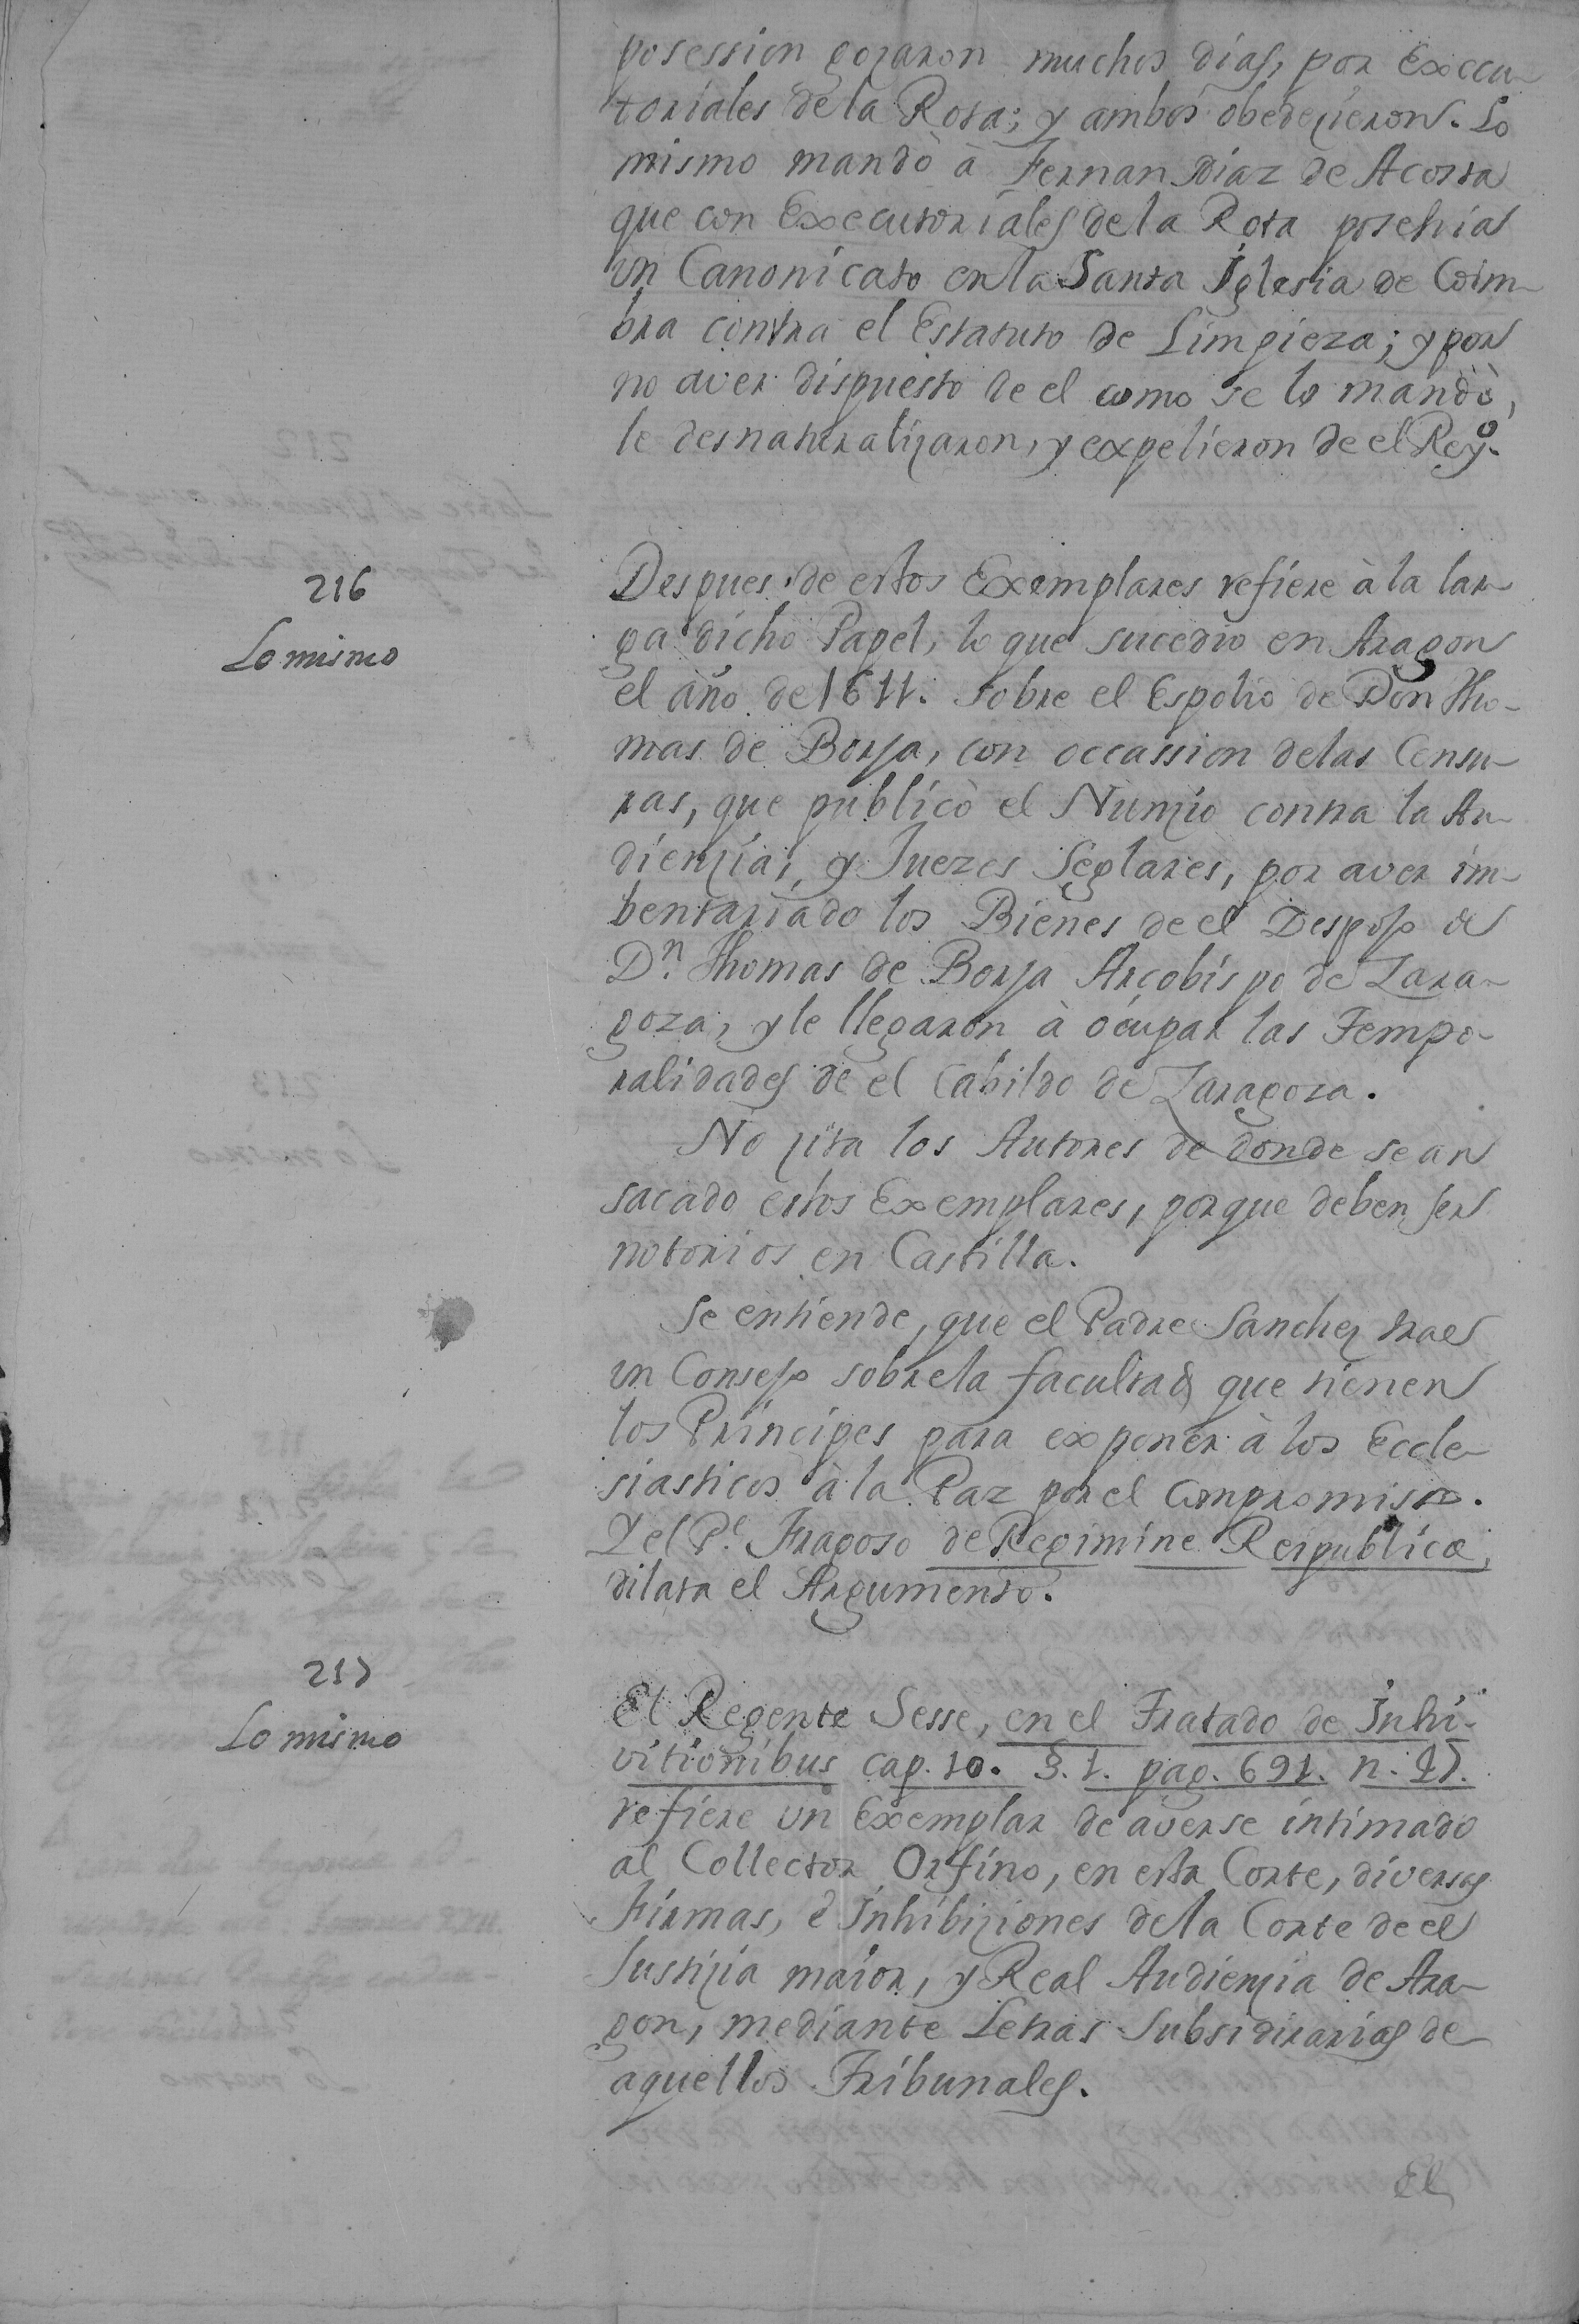 posession gozaron muchos dias, por Execu-
toriales de la Rota; y ambos obedezieron. Lo
mismo mandò à Fernan Diaz de Acosta
que con Executoriales de la Rota posehia
un Canonicato en la Santa Iglesia de Coim-
bra contra el Estatuto de Limpieza; y por
no aver dispuesto de el como se lo mandò,
le desnaturalizaron, y expelieron de el Rey.º
216
Lo mismo
Despues de estos Exemplares refiere à la lar-
ga dicho Papel, lo que sucedio en Aragon
el año de 1611. sobre el Espolio de Don Tho-
mas de Borja, con occassion de las Censu-
ras, que publicò el Nunzio contra la Au-
dienzia, y Juezes Seglares, por aver im-
bentariado los Bienes de el Despojo de
D.n Thomas de Borja Arcobispo de Zara-
goza, y le llegaron à ocupar las Tempo-
ralidades de el Cabildo de Zaragoza.
No zita los Autores de donde se an
sacado estos Exemplares, porque deben ser
notorios en Castilla.
Se entiende, que el Padre Sanchez trae
un Consejo sobre la facultad que tienen
los Principes para exponer à los Eccle-
siasticos à la Paz por el Compromiso.
Y el P.e Fragoso de Regimine Reipublicæ,
dilata el Argumento.
217
Lo mismo
El Regente Sesse, en el Tratado de Inhi-
vitionibus cap. 10. §. 1. pag. 691. n.
refiere un Exemplar de averse intimado
al Collector Orfino, en esta Corte, diversas
Firmas, è Inhibiziones de la Corte de el
Justizia maior, y Real Audienzia de Ara-
gon, mediante Letras Subsidirarias de
aquellos Tribunales.
El